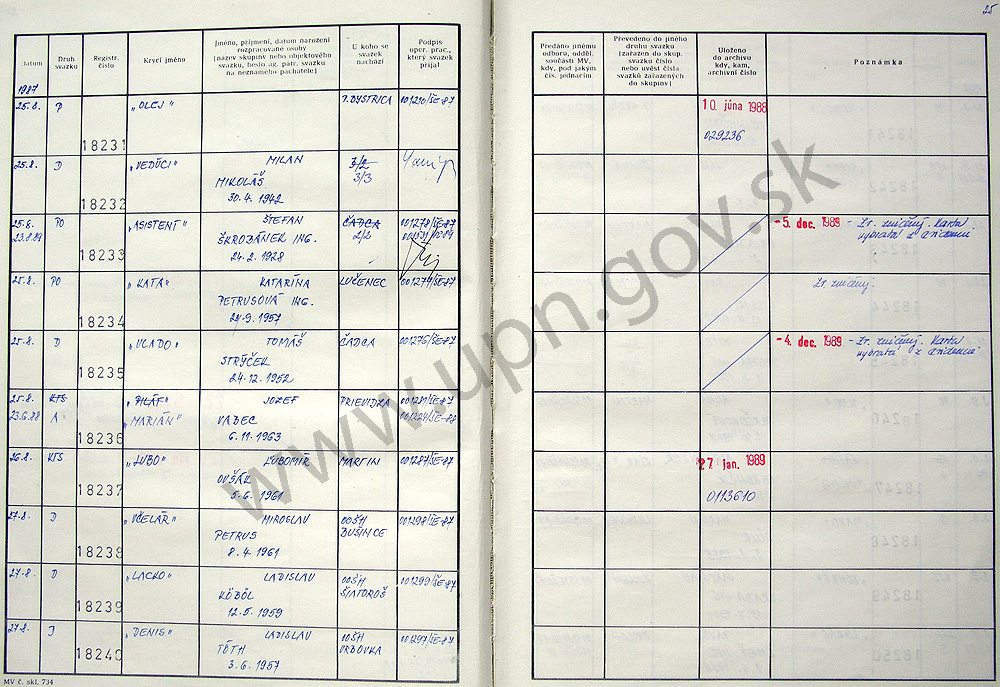 25
Datum
Druh svazku
Registr. číslo
Krycí jméno
Jméno, příjmení, datum narození
rozpracované osoby
(název skupiny nebo objektového
svazku, heslo ag. patr. svazku
na neznámého pachatele)
U koho se
svazek
nachází
Podpis
oper. prac.,
který svazek
přijal
Předáno jinému
odboru, odděl.
součásti MV,
kdy, pod jakým
čís. jednacím
Převedeno do jiného
druhu svazku
(zařazen do skup.
svazku číslo
nebo uvést čísla
svazků zařazených
do skupiny)
Uloženo
do archivu
kdy, kam,
archivní číslo
Poznámka
1987
25.8. 18231 „OLEJ“ 001210/ŠE-87 10. júna 1988
029236
25.8. D 18232 „VEDÚCI“ MILAN 3/2
MIKOLÁŠ 3/3
30.4.1942
25.8. PO 18233 „ASISTENT“ ŠTEFAN ČADCA 001278/ŠE-87 -5. dec. 1989 - Zv. zničený. Karta
23.8.89 ŠKROBÁNEK ING. 2/2
24.2.1928
25.8. PO 18234 „KATA“ KATARÍNA LUČENEC 001277/ŠE-87 Zv. zničený.
PETRUSOVÁ ING.
24.9.1957
25.8. D 18235 „VLADO“ TOMÁŠ ČADCA 001276/ŠE-87 -4. dec. 1989 - Zv. zničený. Karta
STRÝČEK
24.12.1952
25.8. KTS 18236 „PILÁT“ JOZEF PRIEVIDZA
23.6.88 A „MARIÁN“ VABEC
6.11.1963
26.8. KTS 18237 „ĽUBO“ ĽUBOMÍR MARTIN 001287/ŠE-87 27. jan. 1989
5.6.1961 0113610
27.8. 18238 „VČELÁR“ MIROSLAV OOŠH 001298/ŠE-87
PETRUS BUŠINCE
8.4.1961
27.8. D 18239 „LACKO“ LADISLAV OOŠH 001299/ŠE-87
KÖBÖL ŠIATOROŠ
12.5.1959
27.8. 18240 „DENIS“ LADISLAV OOŠH 001297/ŠE-87
TÓTH VRBOVKA
3.6.1957
MV č. skl. 734
www.upn.gov.sk